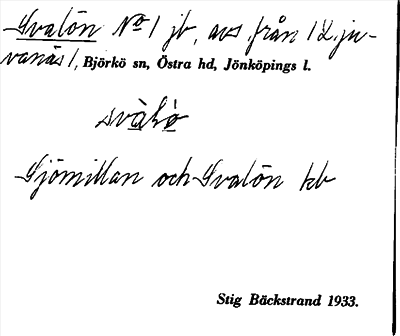 Svalön No 1 jb, avs. från 1 Lju-
vanäs 1, Björkö sn, Östra hd, Jönköpings l.
svàlø
Sjömillan och Svalön kb
Stig Bäckstrand 1933.